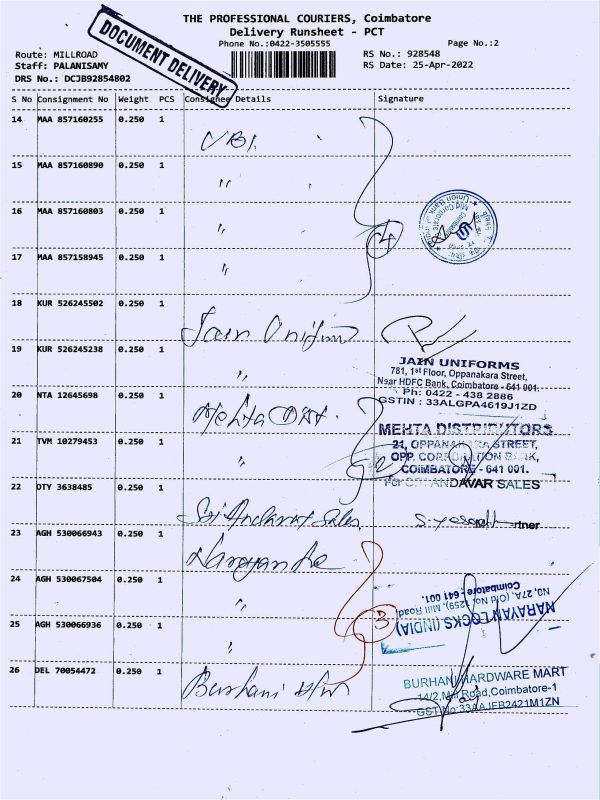 THE PROFESSIONAL COURIERS, Coimbatore
Delivery Runsheet - PCT
Phone No.:0422-3505555
Page No.:2
DOCUMENT DELIVERY
Route: MILLROAD
RS No.: 928548
Staff: PALANISAMY
RS Date: 25-Apr-2022
DRS No.: DCJB92854802
S No Consignment No Weight PCS Consignee Details Signature
14 MAA 857160255 0.250 1 UBI
15 MAA 857160890 0.250 1 "
16 MAA 857160803 0.250 1 "
4
17 MAA 857158945 0.250 1 "
18 KUR 526245502 0.250 1 Jain Uniform
19 KUR 526245238 0.250 1 "
JAIN UNIFORMS
781, 1st Floor, Oppanakara Street,
Near HDFC Bank, Coimbatore - 641 001.
Ph: 0422 - 438 2886
GSTIN : 33ALGPA4619J1ZD
20 NTA 12645698 0.250 1 Mehta Dist.
21 TVM 10279453 0.250 1 "
2
MEHTA DISTRIBUTORS
21, OPPANAKARA STREET,
OPP. CORPORATION BANK,
COIMBATORE - 641 001.
22 DTY 3638485 0.250 1 Sri Andavar Sales
For SRI ANDAVAR SALES
Partner
23 AGH 530066943 0.250 1
24 AGH 530067504 0.250 1 "
25 AGH 530066936 0.250 1 "
3
NARAYAN LOCKS (INDIA)
NO, 27A, (Old No, 1259), Mill Road,
Coimbatore - 641 001.
26 DEL 70054472 0.250 1 Burhani H/W
BURHANI HARDWARE MART
14/2, Mill Road, Coimbatore-1
GST No:33AAJFB2421M1ZN